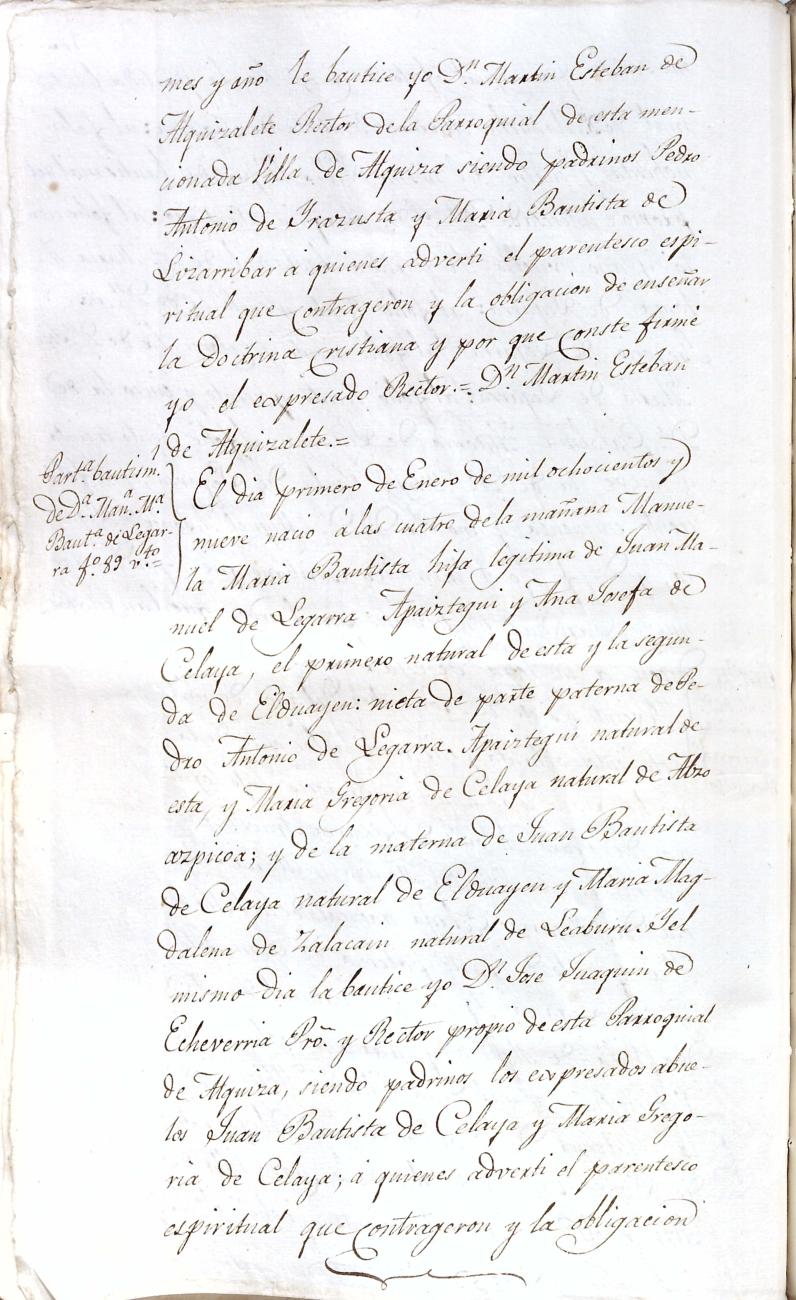 mes y año le bautice yo Dn. Martin Esteban de
Alquizalete Rector dela Parroquial de esta men-
cionada Villa de Alquiza siendo padrinos Pedro
Antonio de Yrazusta y Maria Bautista de
Lizarribar á quienes adverti el parentesco espi-
ritual que contrageron y la obligacion de enseñar
la doctrina cristiana y por que conste firmé
yo el expresado Rector.= Dn. Martin Esteban
de Alquizalete.=
Part.a bautism.l
de D.a Man.a M.a
Baut.a de Legar-
ra f.o 89 v.to=
El dia primero de Enero de mil ochocientos y
nueve nacio à las cuatro dela mañana Manue-
la Maria Bautista hija legitima de Juan Ma-
nuel de Legarra Apaiztegui y Ana Josefa de
Celaya, el primero natural de esta y la segun-
da de Elduayen: nieta de parte paterna de Pe-
dro Antonio de Legarra Apaiztegui natural de
esta, y Maria Gregoria de Celaya natural de Abro
azpicoa; y de la materna de Juan Bautista
de Celaya natural de Elduayen y Maria Mag-
dalena de Zalacain natural de Leaburu. Y el
mismo dia la bautice yo Dn. Jose Juaquin de
Echeverria Pro. y Rector propio de esta Parroquial
de Alquiza, siendo padrinos los expresados abue-
los Juan Bautista de Celaya y Maria Grego-
ria de Celaya; á quienes adverti el parentesco
espiritual que contrageron y la obligacion